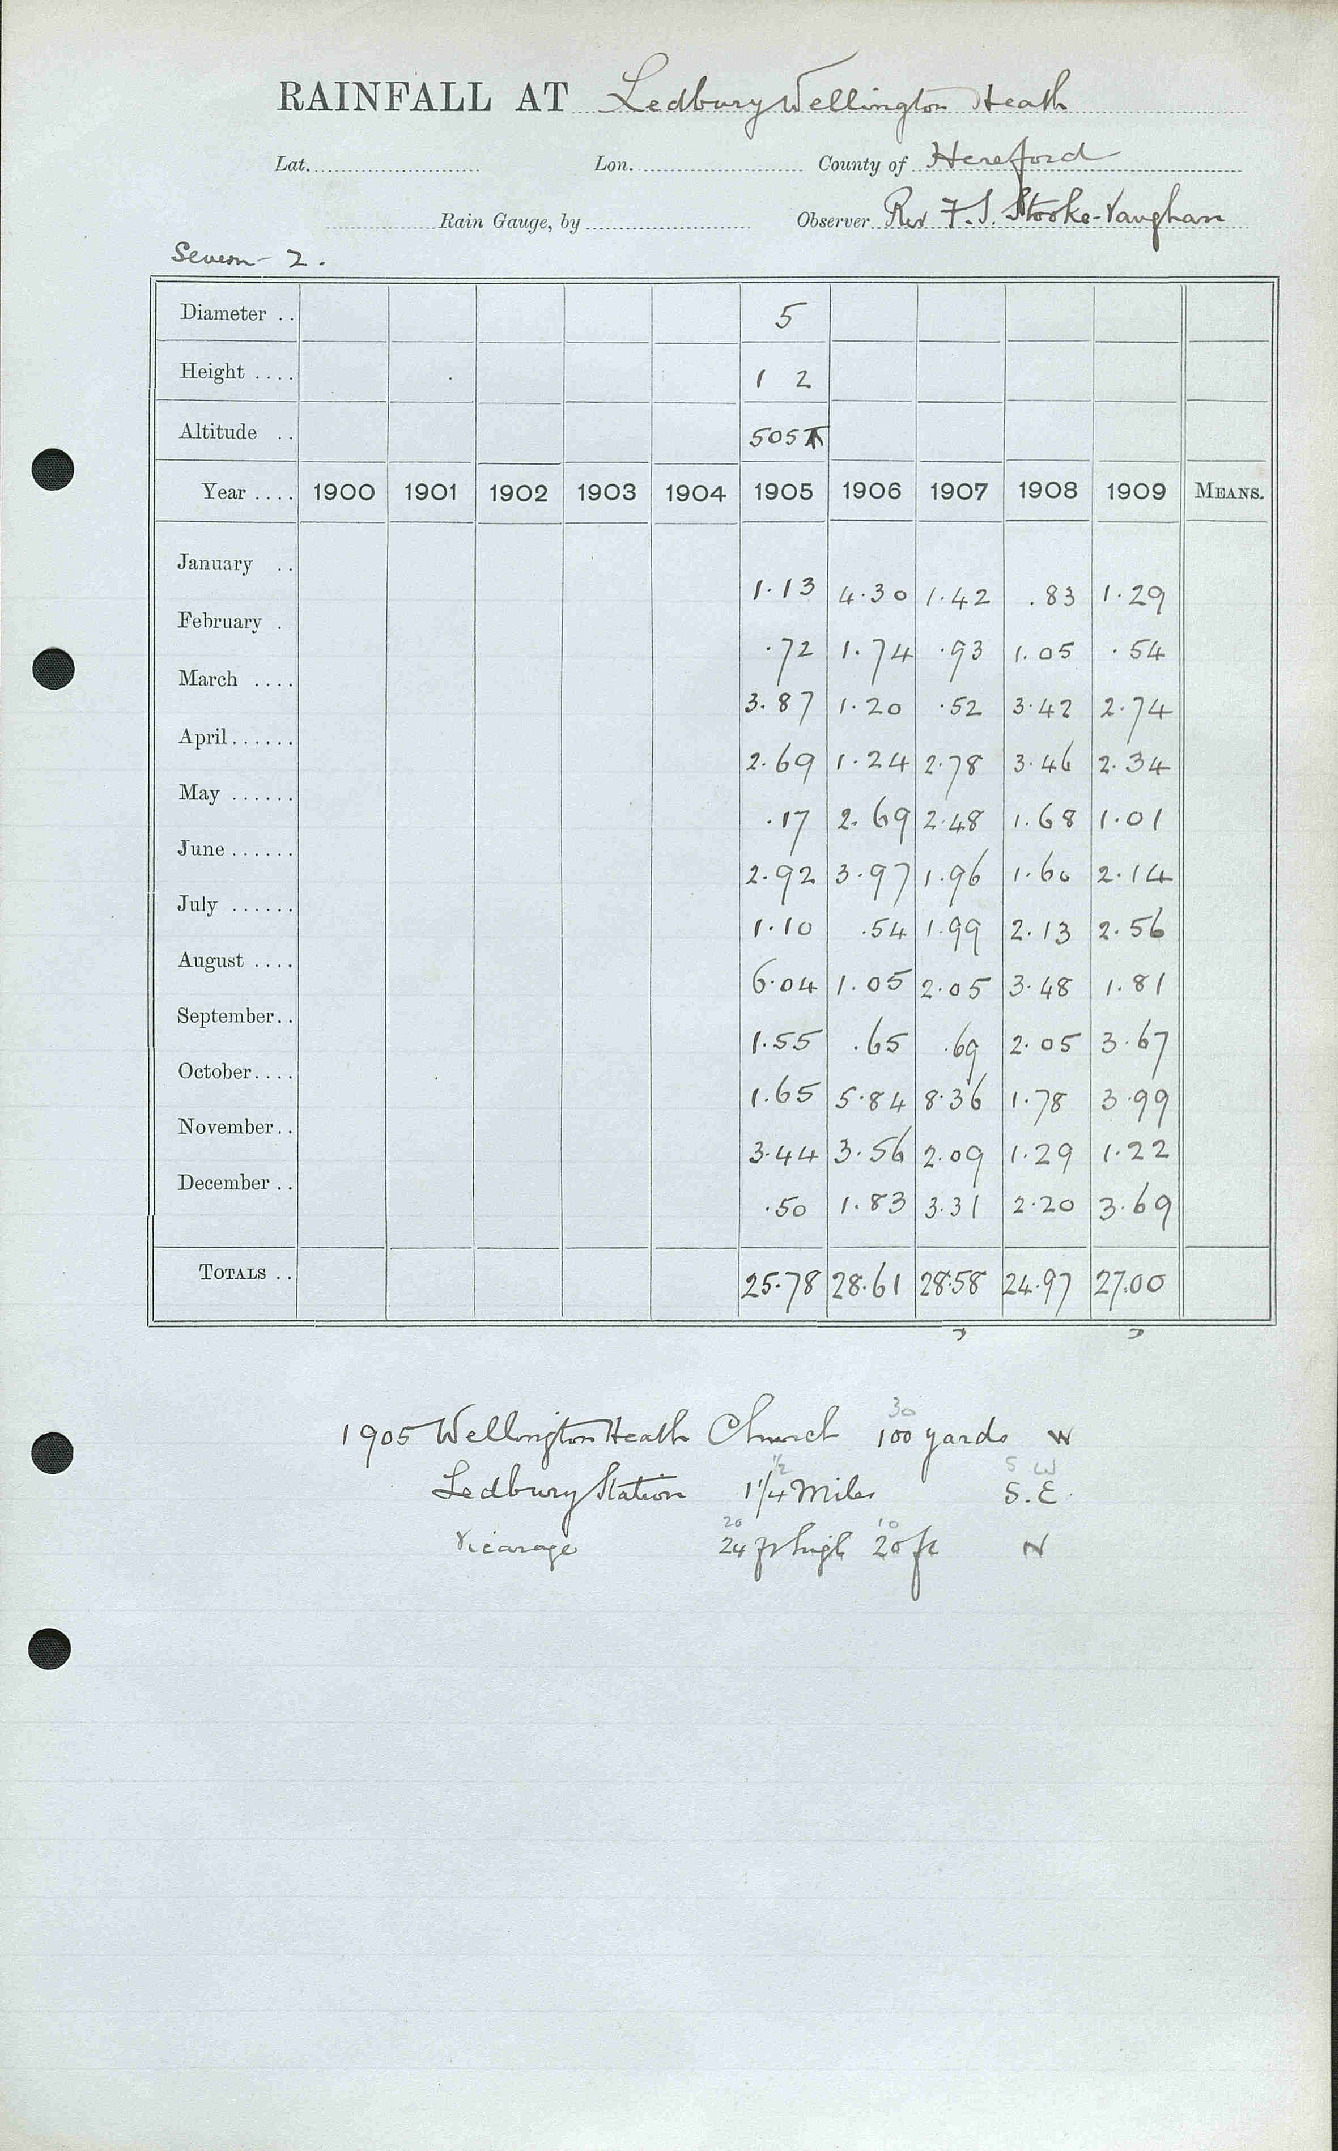 RAINFALL AT Ledbury Wellington Heath
Lat. Lon. County of Hereford
Rain Gauge, by Observer Rev F. S. Stooke-Vaughan
Severn - 2.
Diameter .. 5
Height .... 1 2
Altitude .. 505
Year .... 1900 1901 1902 1903 1904 1905 1906 1907 1908 1909 MEANS.
January .. 1.13 4.30 1.42 .83 1.29
February . .72 1.74 .93 1.05 .54
March .... 3.87 1.20 .52 3.42 2.74
April...... 2.69 1.24 2.78 3.46 2.34
May ...... .17 2.69 2.48 1.68 1.01
June ...... 2.92 3.97 1.96 1.60 2.14
July ...... 1.10 .54 1.99 2.13 2.56
August .... 6.04 1.05 2.05 3.48 1.81
September.. 1.55 .65 .69 2.05 3.67
October.... 1.65 5.84 8.36 1.78 3.99
November.. 3.44 3.56 2.09 1.29 1.22
December .. .50 1.83 3.31 2.20 3.69
TOTALS .. 25.78 28.61 28.58 24.97 27.00
30
1905 Wellington Heath Church 100 yards W
1/2 S W
Ledbury Station 1 1/4 Miles S.E.
20 10
Vicarage 24 ft high 20 ft N